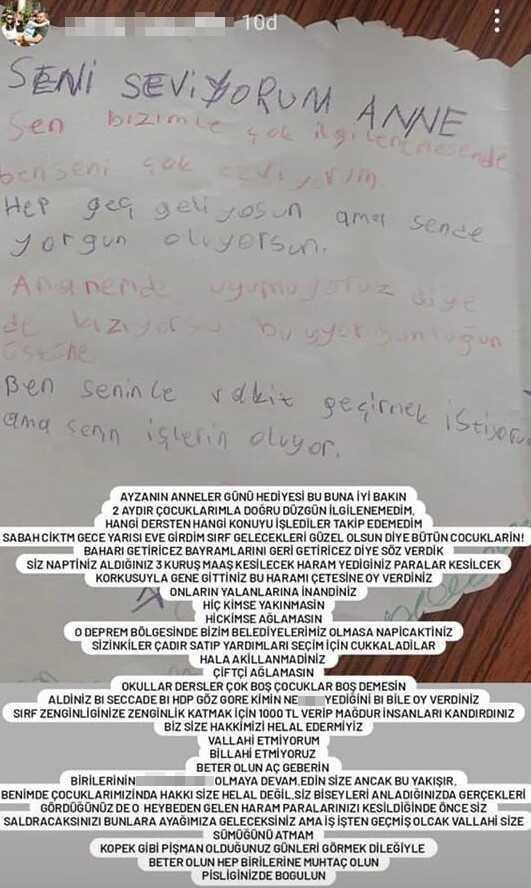 10d
SENİ SEVİYORUM ANNE
Sen bizimle çok ilgilenemesende
ben seni çok seviyorum
Hep geç geliyosun ama sende
yorgun oluyorsun.
Ananemde uyumuyoruz diye
de kızıyorsun bu yorgunluğun
üstüne
Ben seninle vakit geçirmek istiyorum
ama senn işlerin oluyor.
AYZANIN ANNELER GÜNÜ HEDİYESİ BU BUNA İYİ BAKIN
2 AYDIR ÇOCUKLARIMLA DOĞRU DÜZGÜN İLGİLENEMEDİM,
HANGİ DERSTEN HANGİ KONUYU İŞLEDİLER TAKİP EDEMEDİM
SABAH CİKTM GECE YARISI EVE GİRDİM SIRF GELECEKLERİ GÜZEL OLSUN DİYE BÜTÜN COCUKLARİN!
BAHARI GETİRİCEZ BAYRAMLARINI GERİ GETİRİCEZ DİYE SÖZ VERDİK
SİZ NAPTİNİZ ALDIĞINIZ 3 KURUŞ MAAŞ KESİLECEK HARAM YEDİGİNİZ PARALAR KESİLCEK
KORKUSUYLA GENE GİTTİNİZ BU HARAMİ ÇETESİNE OY VERDİNİZ
ONLARIN YALANLARINA İNANDİNIZ
HİÇ KİMSE YAKINMASİN
HİCKİMSE AĞLAMASIN
O DEPREM BÖLGESİNDE BİZİM BELEDİYELERİMİZ OLMASA NAPİCAKTİNİZ
SİZİNKİLER ÇADIR SATIP YARDIMLARI SEÇİM İÇİN CUKKALADİLAR
HALA AKİLLANMADİNIZ
ÇİFTÇİ AĞLAMASIN
OKULLAR DERSLER ÇOK BOŞ ÇOCUKLAR BOŞ DEMESİN
ALDİNİZ BI SECCADE BI HDP GÖZ GÖRE KİMİN NE YEDİĞİNİ BI BİLE OY VERDİNİZ
SIRF ZENGİNLİGİNİZE ZENGİNLİK KATMAK İÇİN 1000 TL VERİP MAĞDUR İNSANLARI KANDIRDINIZ
BİZ SİZE HAKKİMİZİ HELAL EDERMİYİZ
VALLAHİ ETMİYORUM
BİLLAHİ ETMİYORUZ
BETER OLUN AÇ GEBERİN
BİRİLERİNİN OLMAYA DEVAM,EDİN SİZE ANCAK BU YAKIŞIR,
BENİMDE ÇOCUKLARIMIZINDA HAKKI SİZE HELAL DEĞİL,SİZ BİSEYLERİ ANLADIĞINIZDA GERÇEKLERİ
GÖRDÜĞÜNÜZ DE O HEYBEDEN GELEN HARAM PARALARINIZI KESİLDİĞİNDE ÖNCE SİZ
SALDIRACAKSINIZI BUNLARA AYAĞIMIZA GELECEKSİNİZ AMA İŞ İŞTEN GEÇMİŞ OLCAK VALLAHİ SİZE
SÜMÜĞÜNÜ ATMAM
KOPEK GİBİ PİŞMAN OLDUĞUNUZ GÜNLERİ GÖRMEK DİLEĞİYLE
BETER OLUN HEP BIRILERINE MUHTAÇ OLUN
PISLIGINIZDE BOGULUN